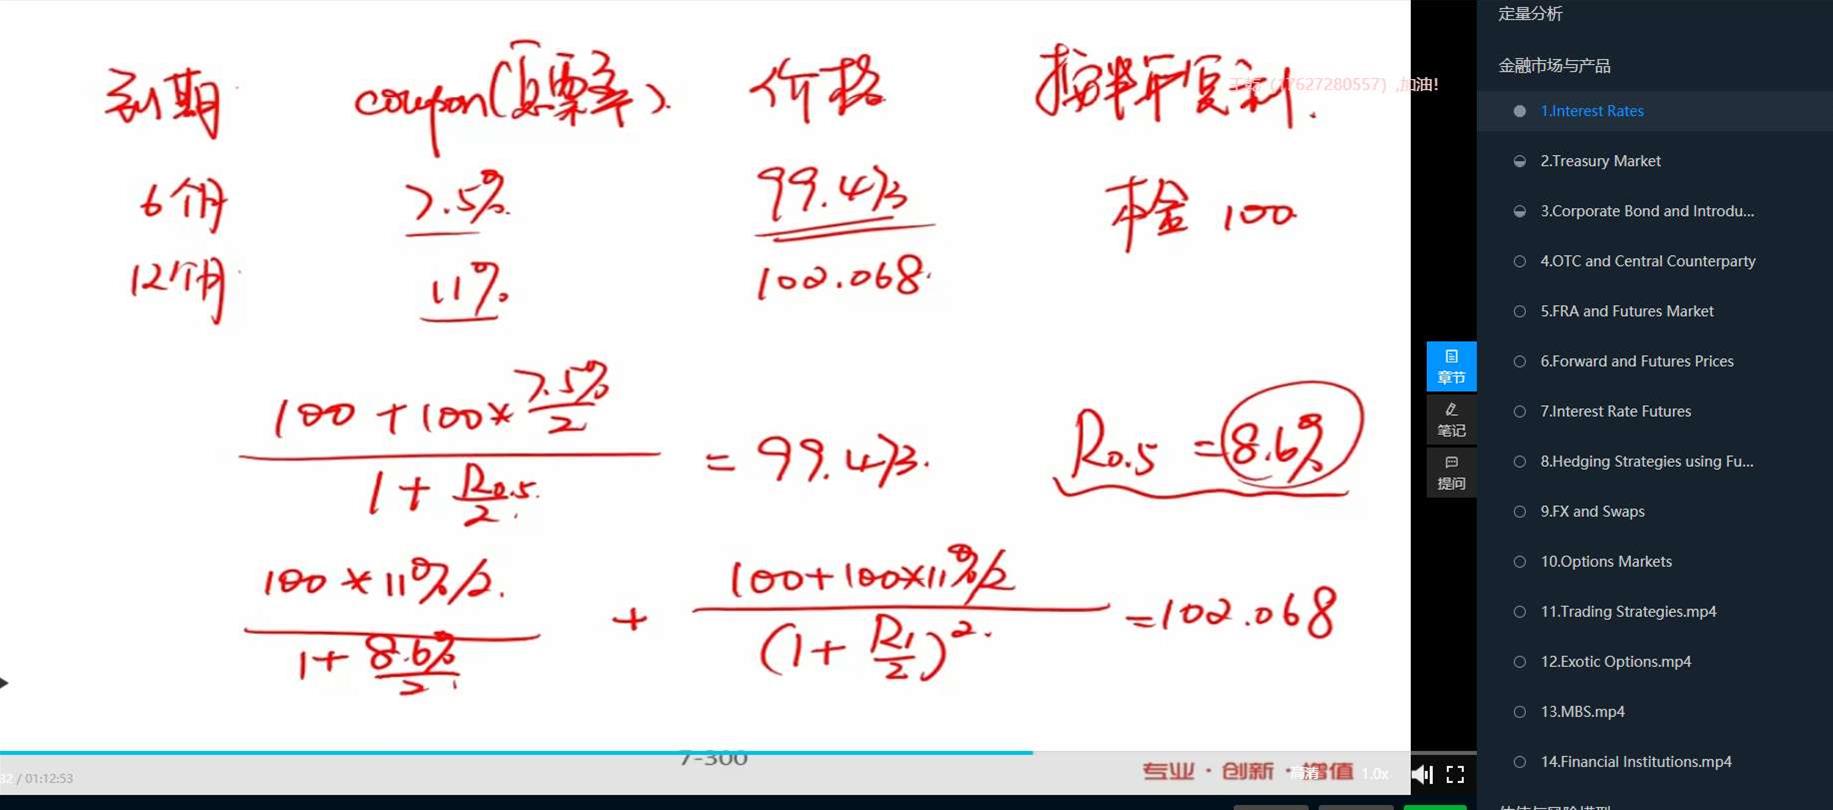 到期 coupon(息票率). 价格 按半年复利.
6个月 7.5% 99.473 本金 100
12个月 11% 102.068.
100 + 100* 7.5%/2
1 + R0.5/2
= 99.473.
R0.5 = 8.6%
100 * 11%/2.
1 + 8.6%/2
+
100+100*11%/2
(1 + R1/2)².
= 102.068
7-300
专业·创新·增值
/ 01:12:53
高清
1.0x
(17627280557) ,加油!
章节
笔记
提问
定量分析
金融市场与产品
1.Interest Rates
2.Treasury Market
3.Corporate Bond and Introdu...
4.OTC and Central Counterparty
5.FRA and Futures Market
6.Forward and Futures Prices
7.Interest Rate Futures
8.Hedging Strategies using Fu...
9.FX and Swaps
10.Options Markets
11.Trading Strategies.mp4
12.Exotic Options.mp4
13.MBS.mp4
14.Financial Institutions.mp4